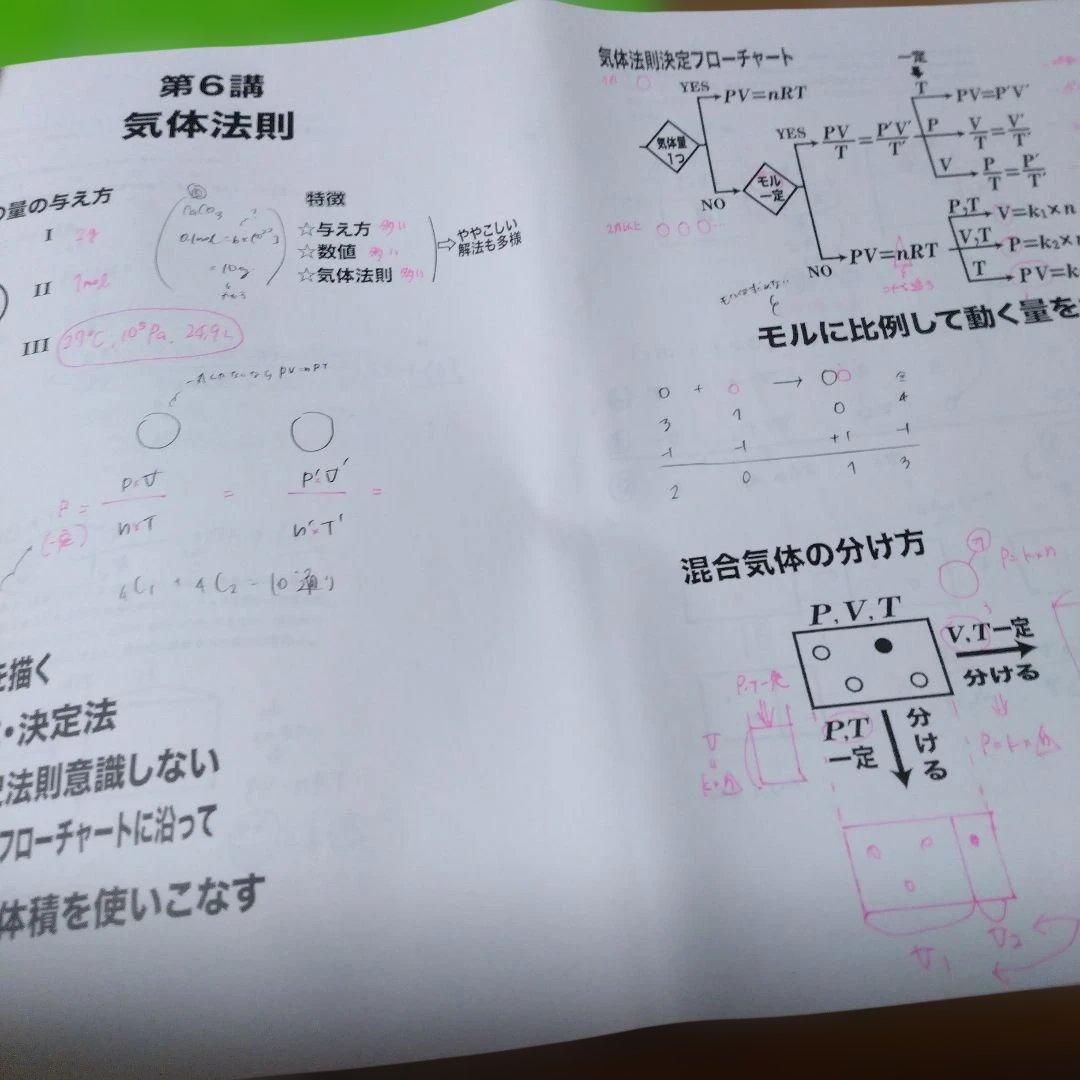 第6講
気体法則
の量の与え方
I 2g
II 1mol
III 27℃, 10⁵Pa, 24.9L
CaCO₃
0.1mol = 6×10²²
= 10g
特徴
☆与え方 多い
☆数値 多い
☆気体法則 多い
⇒ややこしい
解法も多様
R = P×V / n×T = P'×V' / n'×T' =
(一定)
₄C₁ + ₄C₂ = 10通り
を描く
・決定法
法則意識しない
フローチャートに沿って
体積を使いこなす
気体法則決定フローチャート
1コ ○
気体量
1つ
YES
PV=nRT
NO
2コ以上 ○○○…
モル
一定
YES
PV/T = P'V'/T'
一定
T
PV=P'V'
P
V/T = V'/T'
V
P/T = P'/T'
NO
PV=nRT
P,T
V=k₁×n
V,T
P=k₂×n
T
PV=k
モルに比例して動く量を
○ + ○ → ○○ 全
3 1 0 4
-1 -1 +1 -1
2 0 1 3
混合気体の分け方
P=k×n
P,V,T
V,T一定
分ける
P=k×n
P,T一定
V=k×n
P,T
一定
分ける
V₁ V₂